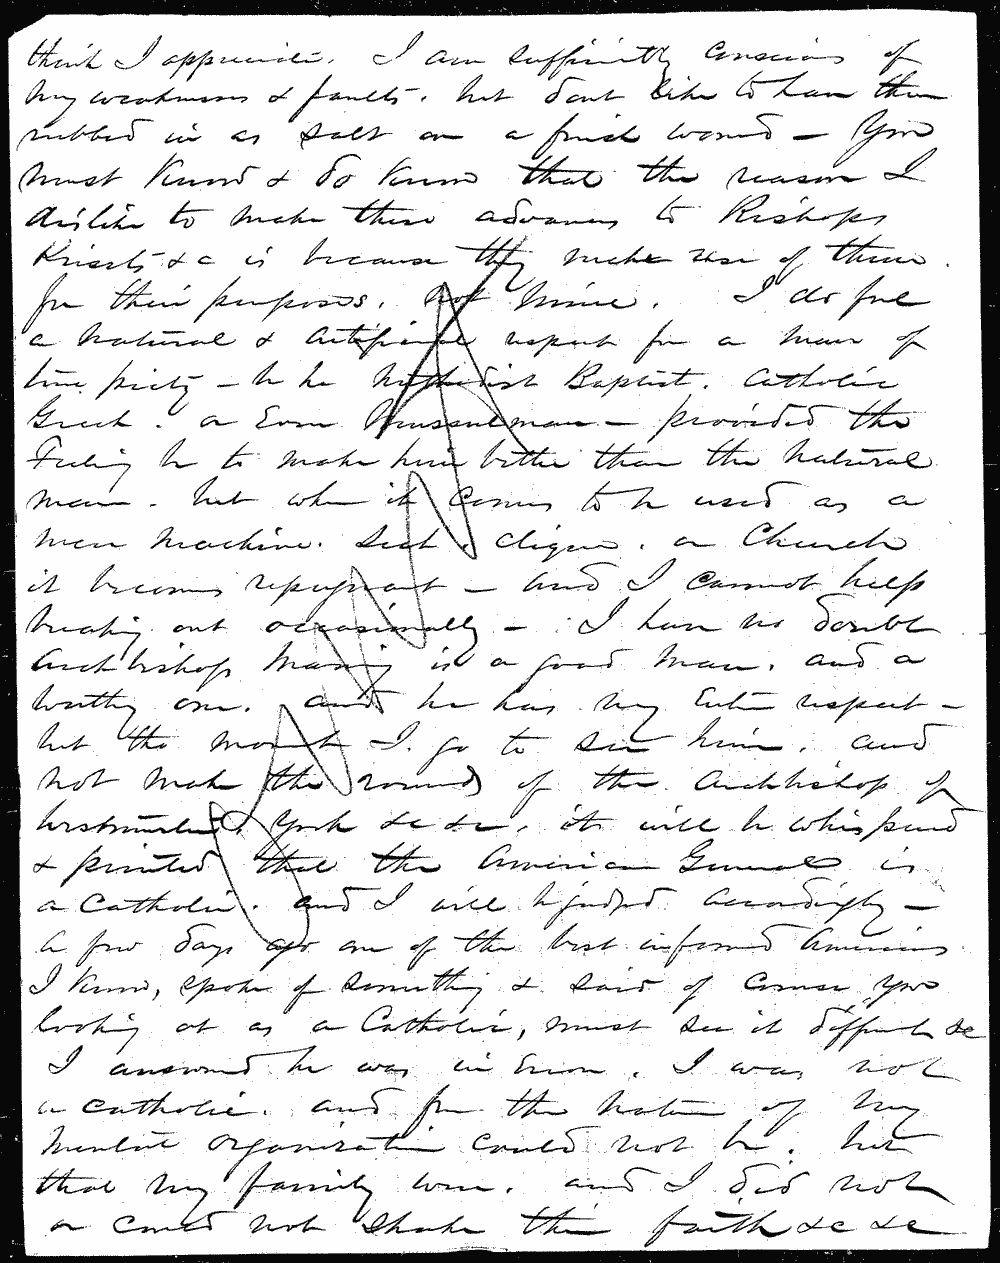 think I appreciate. I am sufficiently conscious of
my weakness & faults. but dont like to have them
rubbed in as salt on a fresh wound — You
must know & do know that the reason I
dislike to make these advances to Bishops
Priests &c is because they make use of them.
for their purposes. not mine. I do feel
a natural & artificial respect for a man of
true piety — be he Methodist Baptist. Catholic
Greek. or Even Mussulman — provided the
Feeling be to make him better than the natural
man. but when it comes to be used as a
mere machine. Sect. clique. or Church
it becomes repugnant — and I cannot help
breaking out occasionally — I have no doubt
Archbishop Manning is a good man. and a
worthy one. and he has my Entire respect —
but the moment I go to see him. and
not make the rounds of the Archbishop of
Westminster, York &c &c, it will be whispered
& printed that the American General is
a Catholic. and I will be judged accordingly —
a few days ago one of the best informed Americans
I know, spoke of something & said of course you
looking at as a Catholic, must see it different &c
I answered he was in Error. I was not
a catholic. and from the nature of my
mental organization could not be. but
that my family were. and I did not
or could not shake their faith &c &c